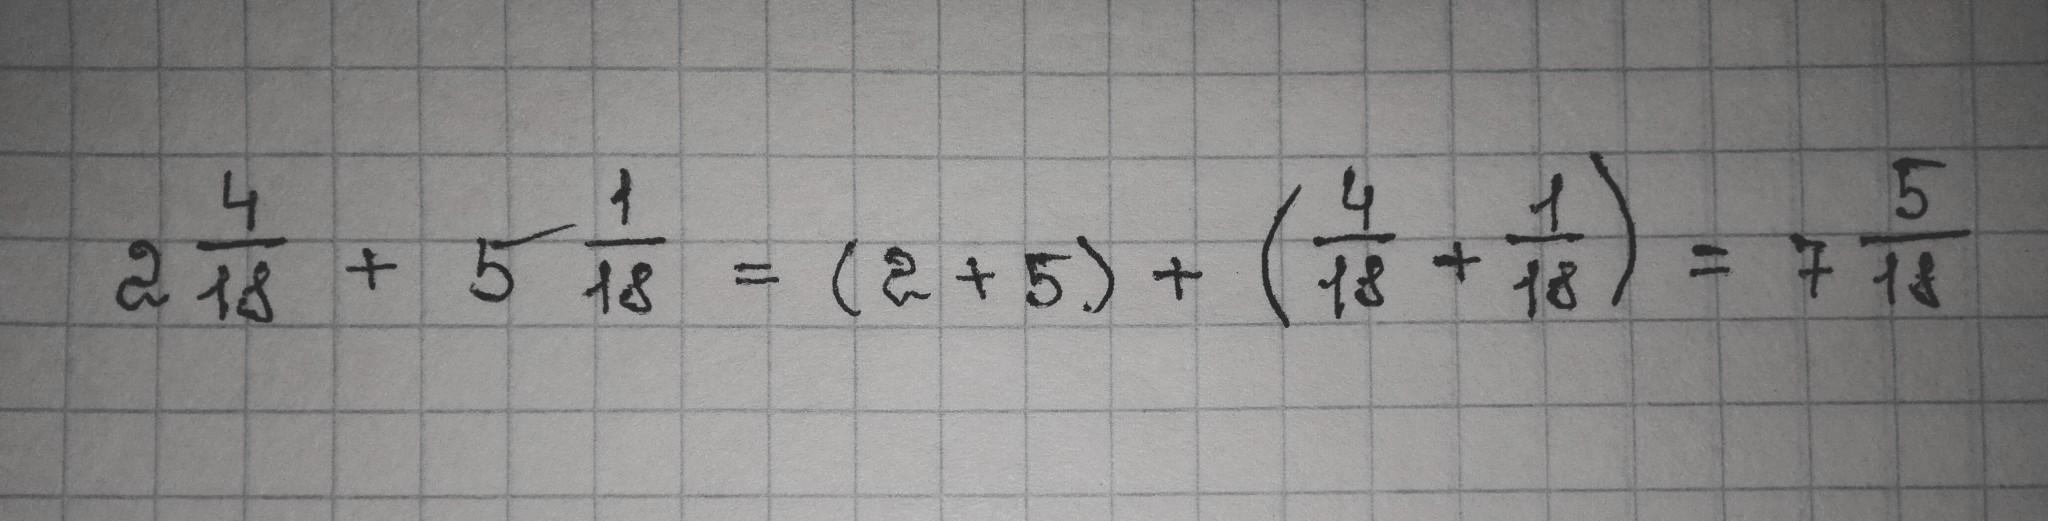 2 4/18 + 5 1/18 = (2 + 5) + (4/18 + 1/18) = 7 5/18